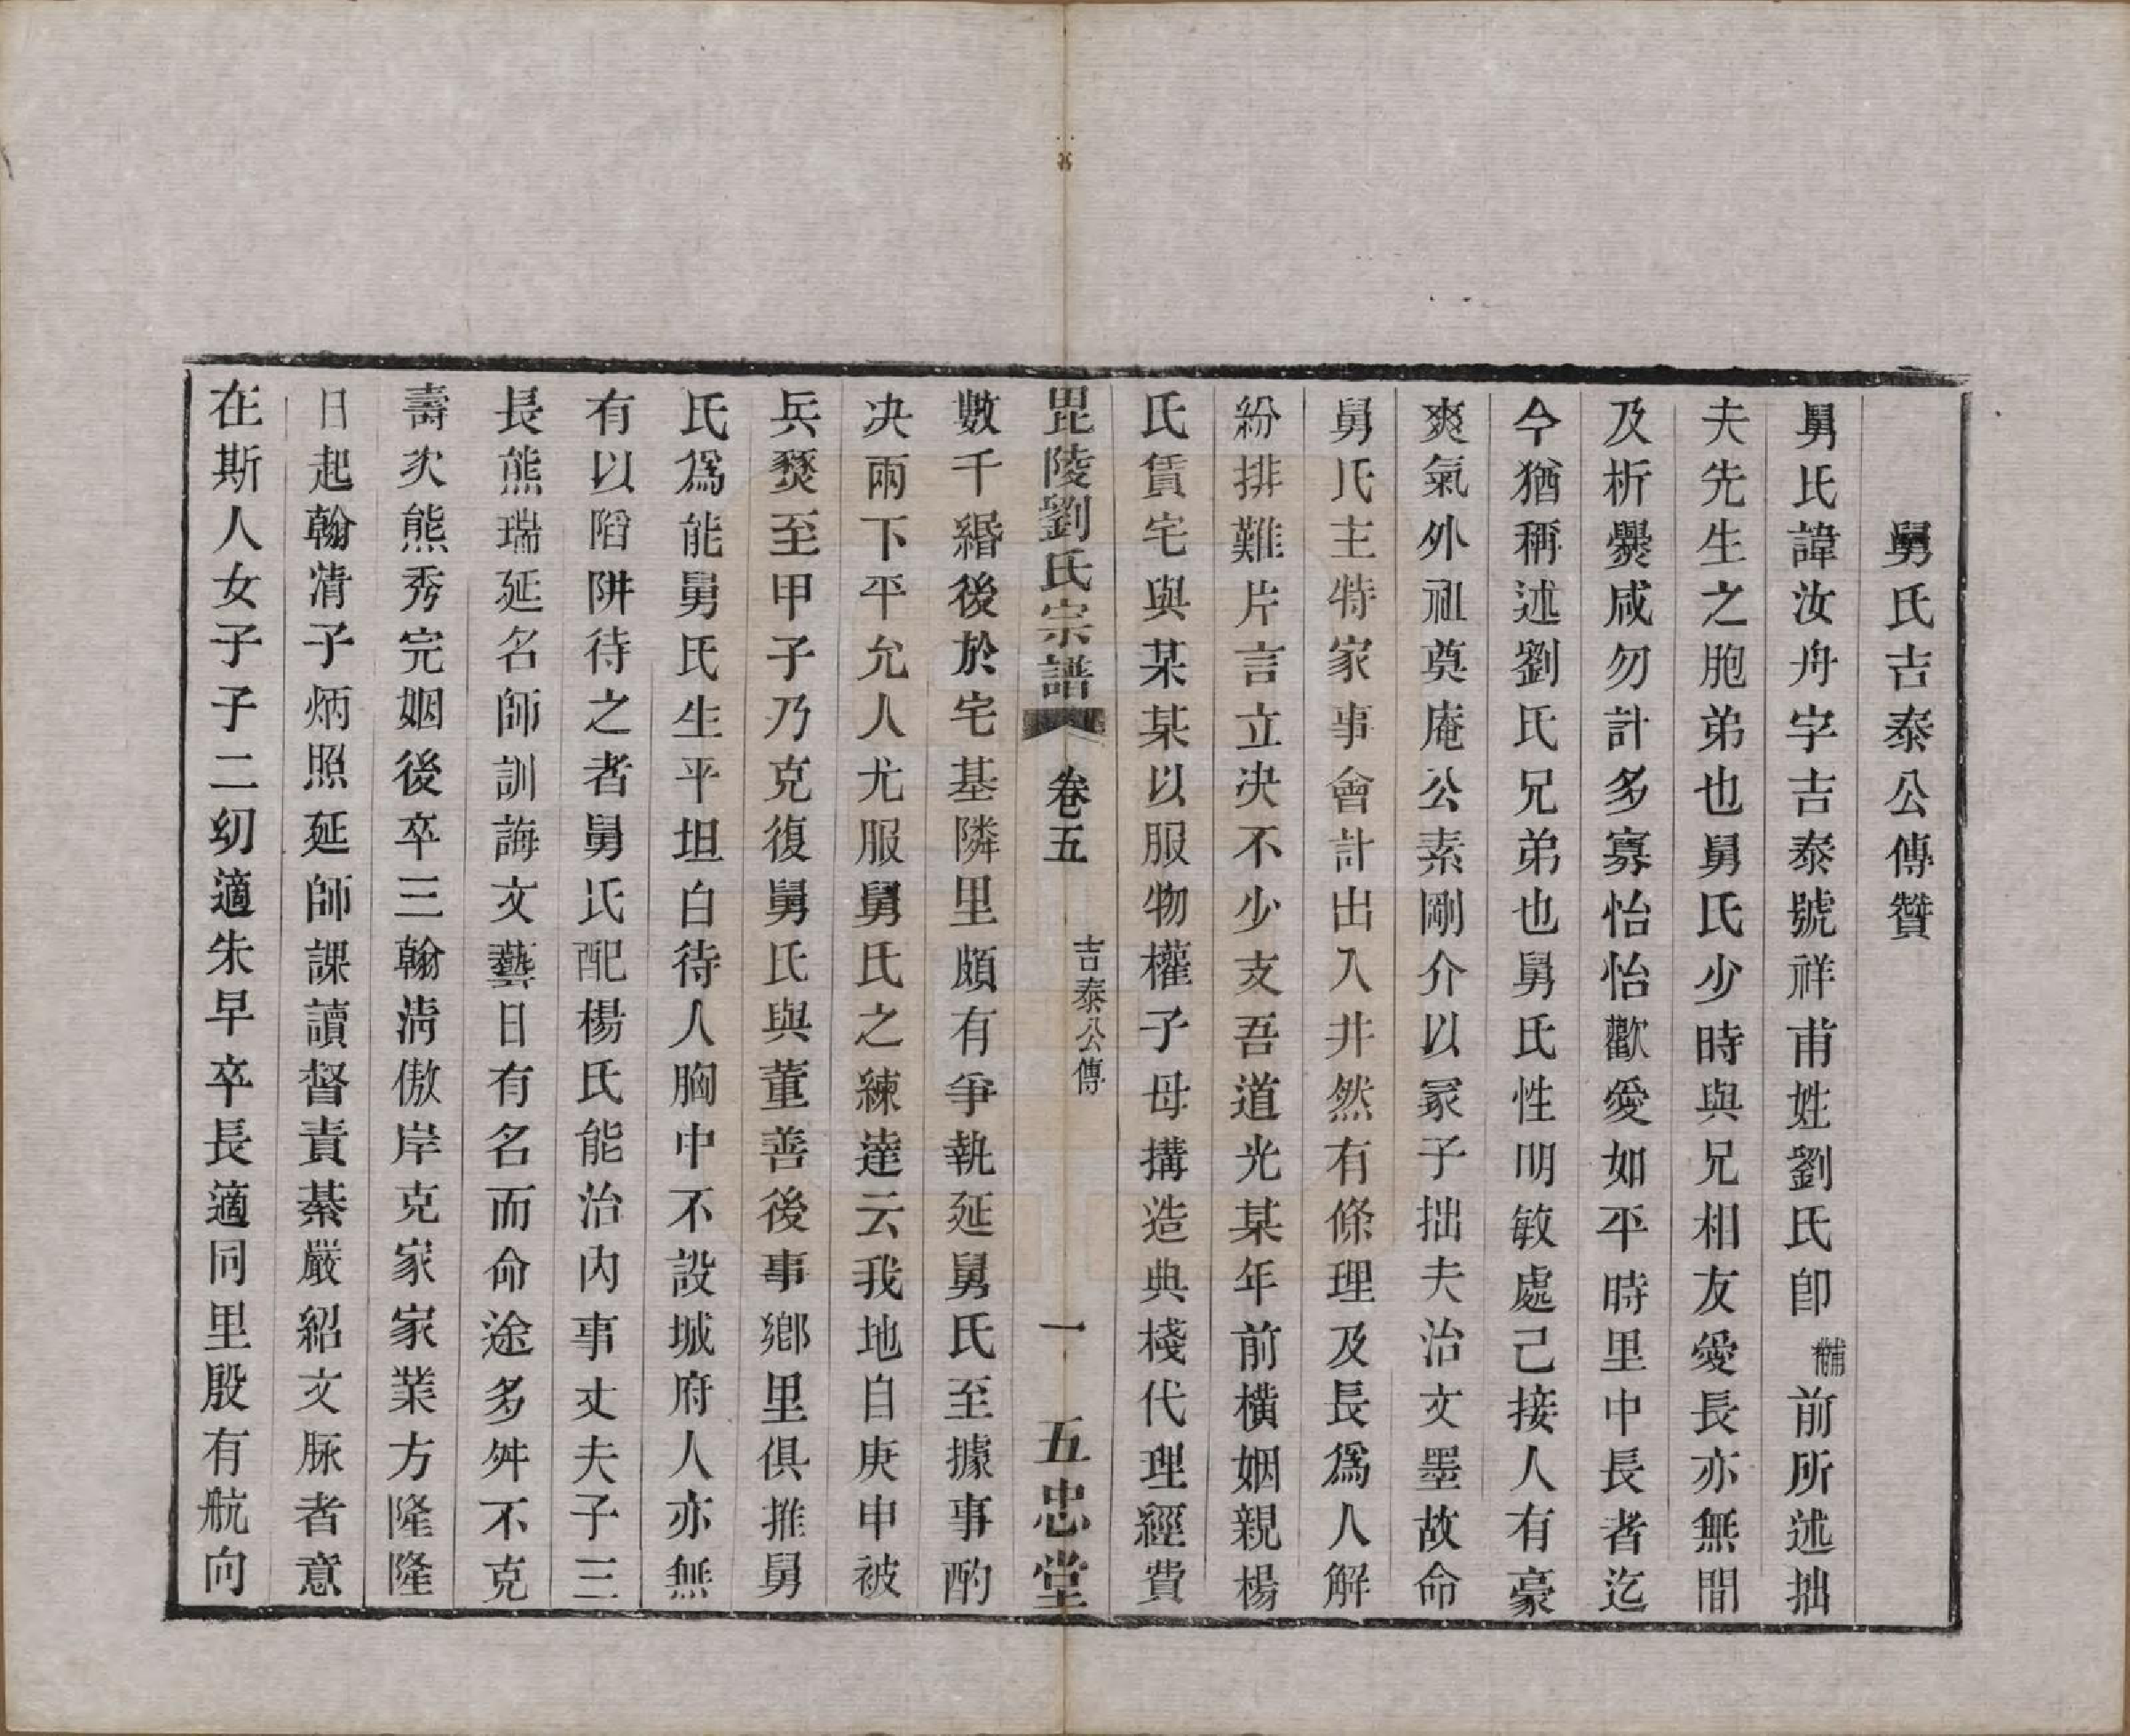 舅氏吉泰公傳贊
舅氏諱汝舟字吉泰號祥甫姓劉氏卽黼前所述拙
夫先生之胞弟也舅氏少時與兄相友愛長亦無間
及析爨咸勿計多寡怡怡歡愛如平時里中長者迄
今猶稱述劉氏兄弟也舅氏性明敏處己接人有豪
爽氣外祖奠庵公素剛介以冢子拙夫治文墨故命
舅氏主特家事會計出入井然有條理及長爲人解
紛排難片言立決不少支吾道光某年前橫姻親楊
氏賃宅與某某以服物權子母搆造典棧代理經費
毘陵劉氏宗譜 卷五 吉泰公傳 一 五忠堂
數千緡後於宅基隣里頗有爭執延舅氏至據事酌
決兩下平允人尤服舅氏之練達云我地自庚申被
兵燹至甲子乃克復舅氏與董善後事鄉里俱推舅
氏爲能舅氏生平坦白待人胸中不設城府人亦無
有以陷阱待之者舅氏配楊氏能治內事丈夫子三
長熊瑞延名師訓誨文藝日有名而命途多舛不克
壽次熊秀完姻後卒三翰淸傲岸克家家業方隆隆
日起翰淸子炳照延師課讀督責綦嚴紹文脈者意
在斯人女子子二幼適朱早卒長適同里殷有航向